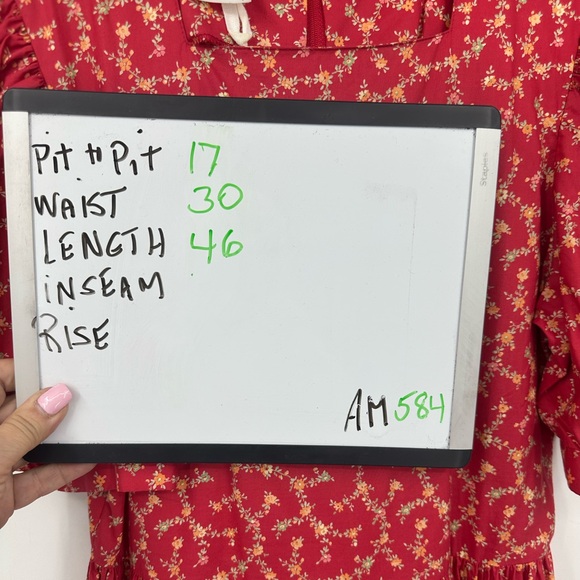 Pit to Pit 17
WAIST 30
LENGTH 46
INSEAM
RISE
AM 584
Staples